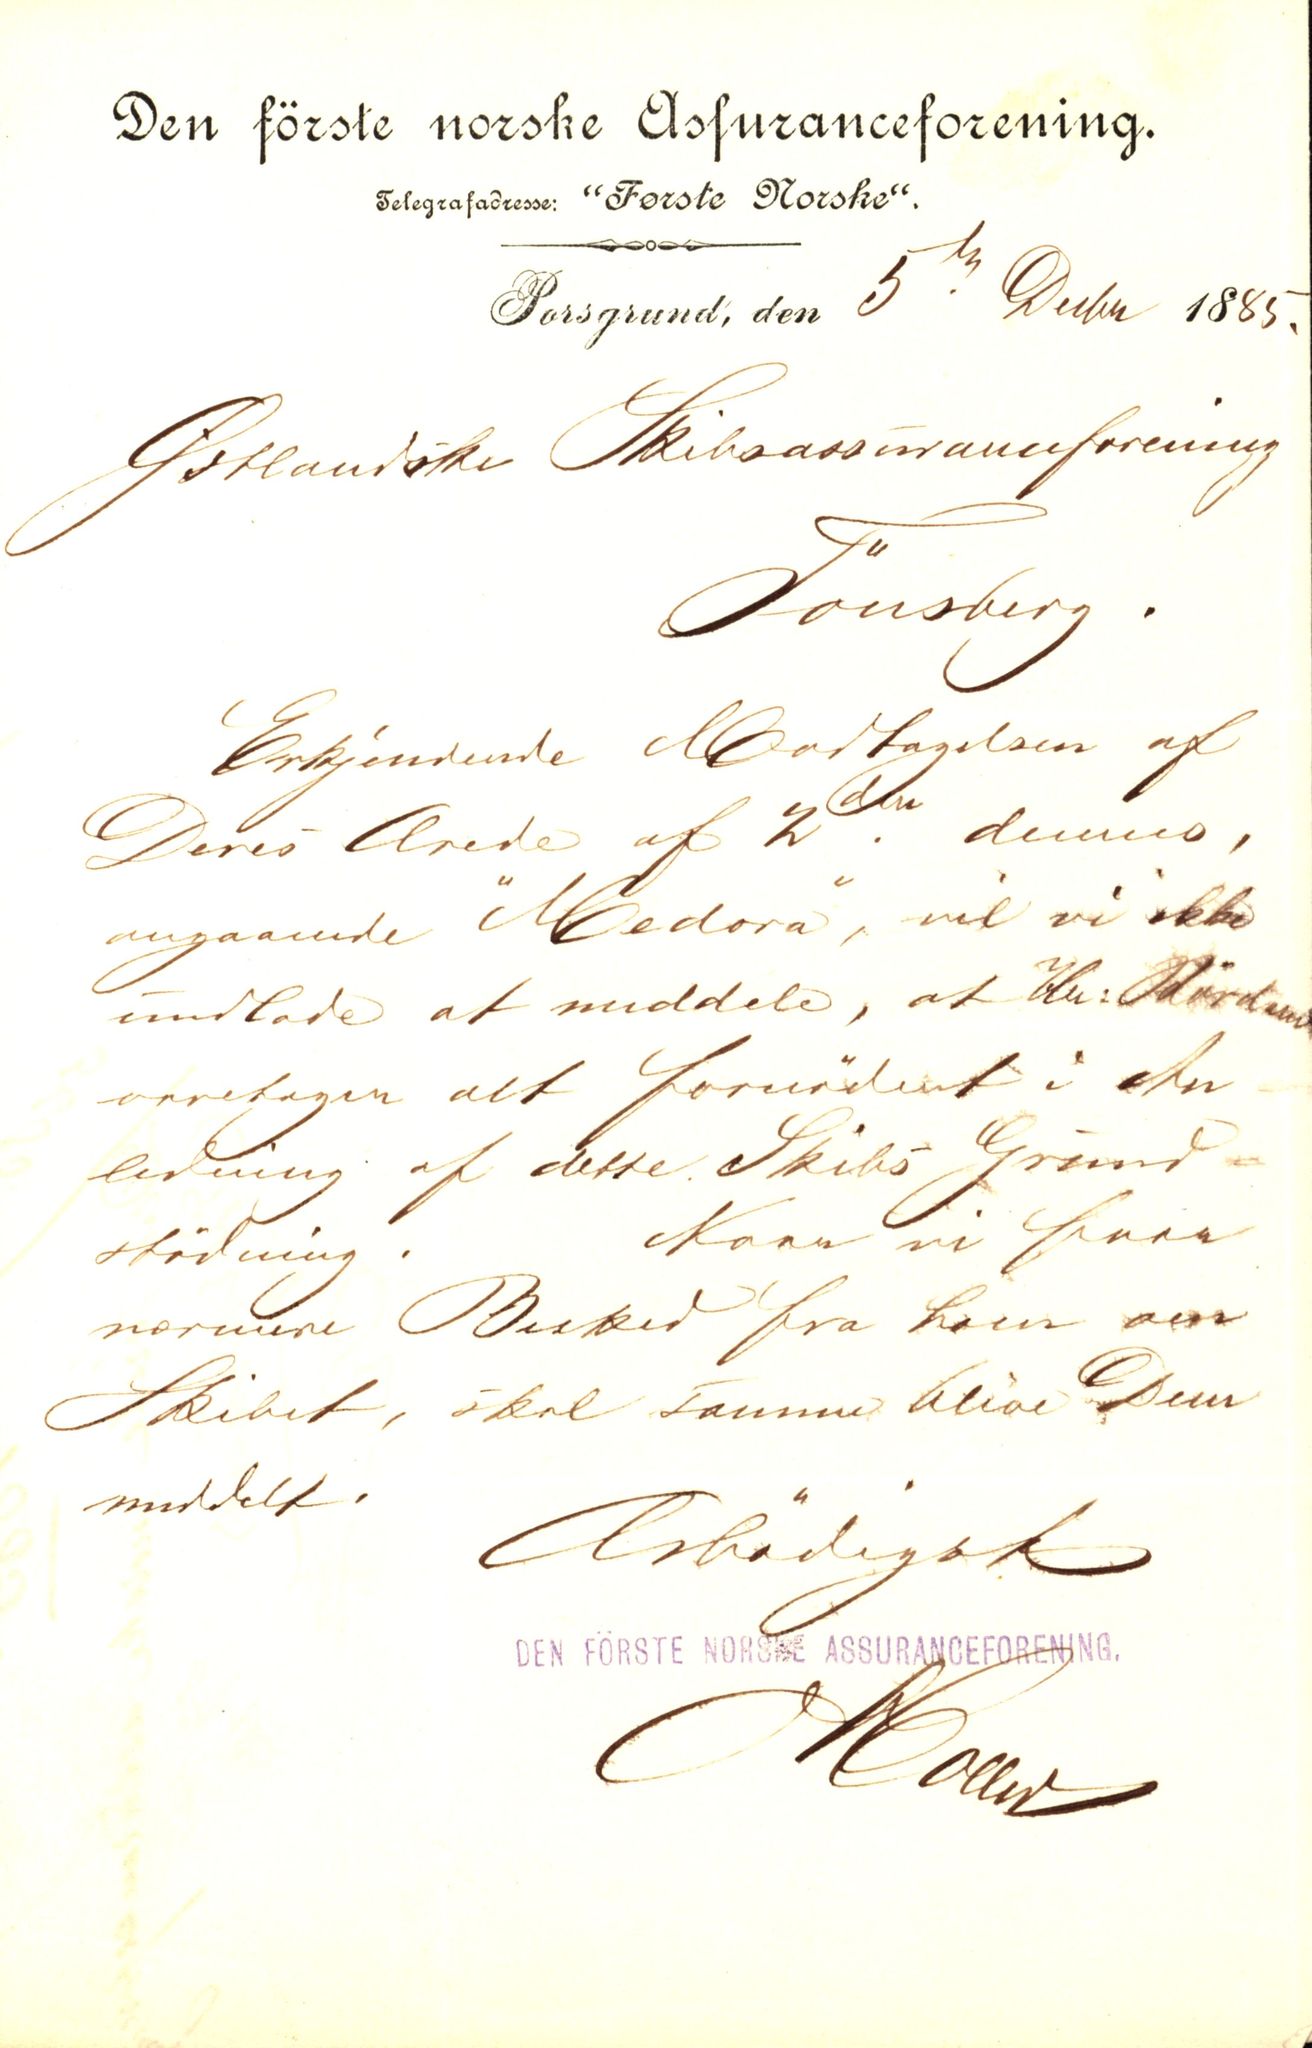 Den förste norske Assuranceforening.
Telegrafadresse: "Første Norske".
Porsgrund, den 5te Decbr 1885.
Østlandske Skibsassuranceforening
Tönsberg.
Erkjendende Modtagelsen af
Deres Ærede af 2den dennes,
angaaende "Medora", vil vi ikke
undlade at meddele, at Hr:
foretager alt fornödent i An-
ledning af dette Skibs Grund-
stödning. Naar vi faar
nærmere Besked fra ham om
Skibet, skal samme blive Dem
meddelt.
Ærbödigst
DEN FÖRSTE NORSKE ASSURANCEFORENING.